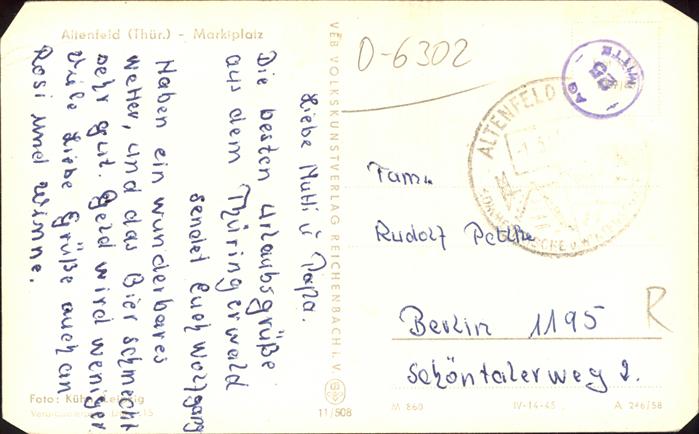 Altenfeld (Thür.) - Marktplatz
Liebe Mutti u Papa.
Die besten Urlaubsgrüße
aus dem Thüringerwald
sendet Euch Wolfgang
Haben ein wunderbares
Wetter, und das Bier schmeckt
sehr gut. Geld wird weniger.
Viele liebe Grüße auch an
Rosi und Winne.
Foto: Kühn, Leipzig
VEB VOLKSKUNSTVERLAG REICHENBACH i. V.
11/508
D-6302
AG
25
MITTE
ALTENFELD
Fam.
Rudolf
Berlin 1195
Schöntalerweg 2.
R
M 860
IV-14-45
A 246/58